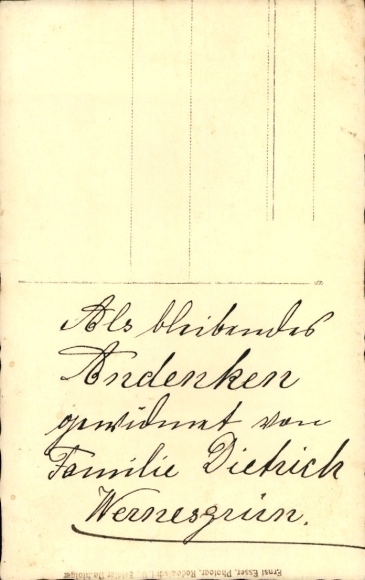 Als bleibendes
Andenken
gewidmet von
Familie Dietrich
Wernesgrün.
Ernst Esser, Photogr. Rodewisch